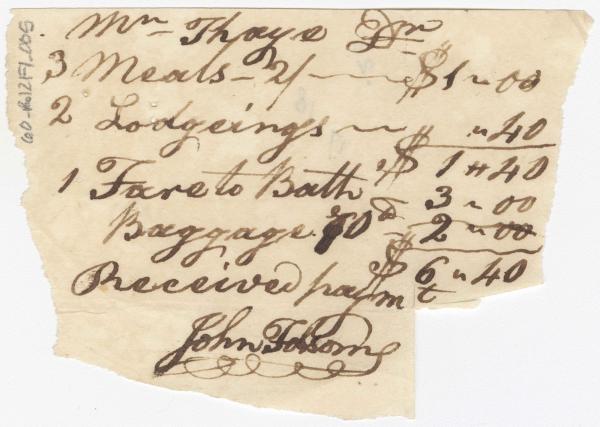 Mr Thaye Dr
3 Meals - 2/ — $1 " 00
2 Lodgeings — $ " 40
$ 1 " 40
1 Fare to Bath 3 " 00
Baggage 70 d - 2 " 00
$ 6 " 40
Received paymt
John Folsom